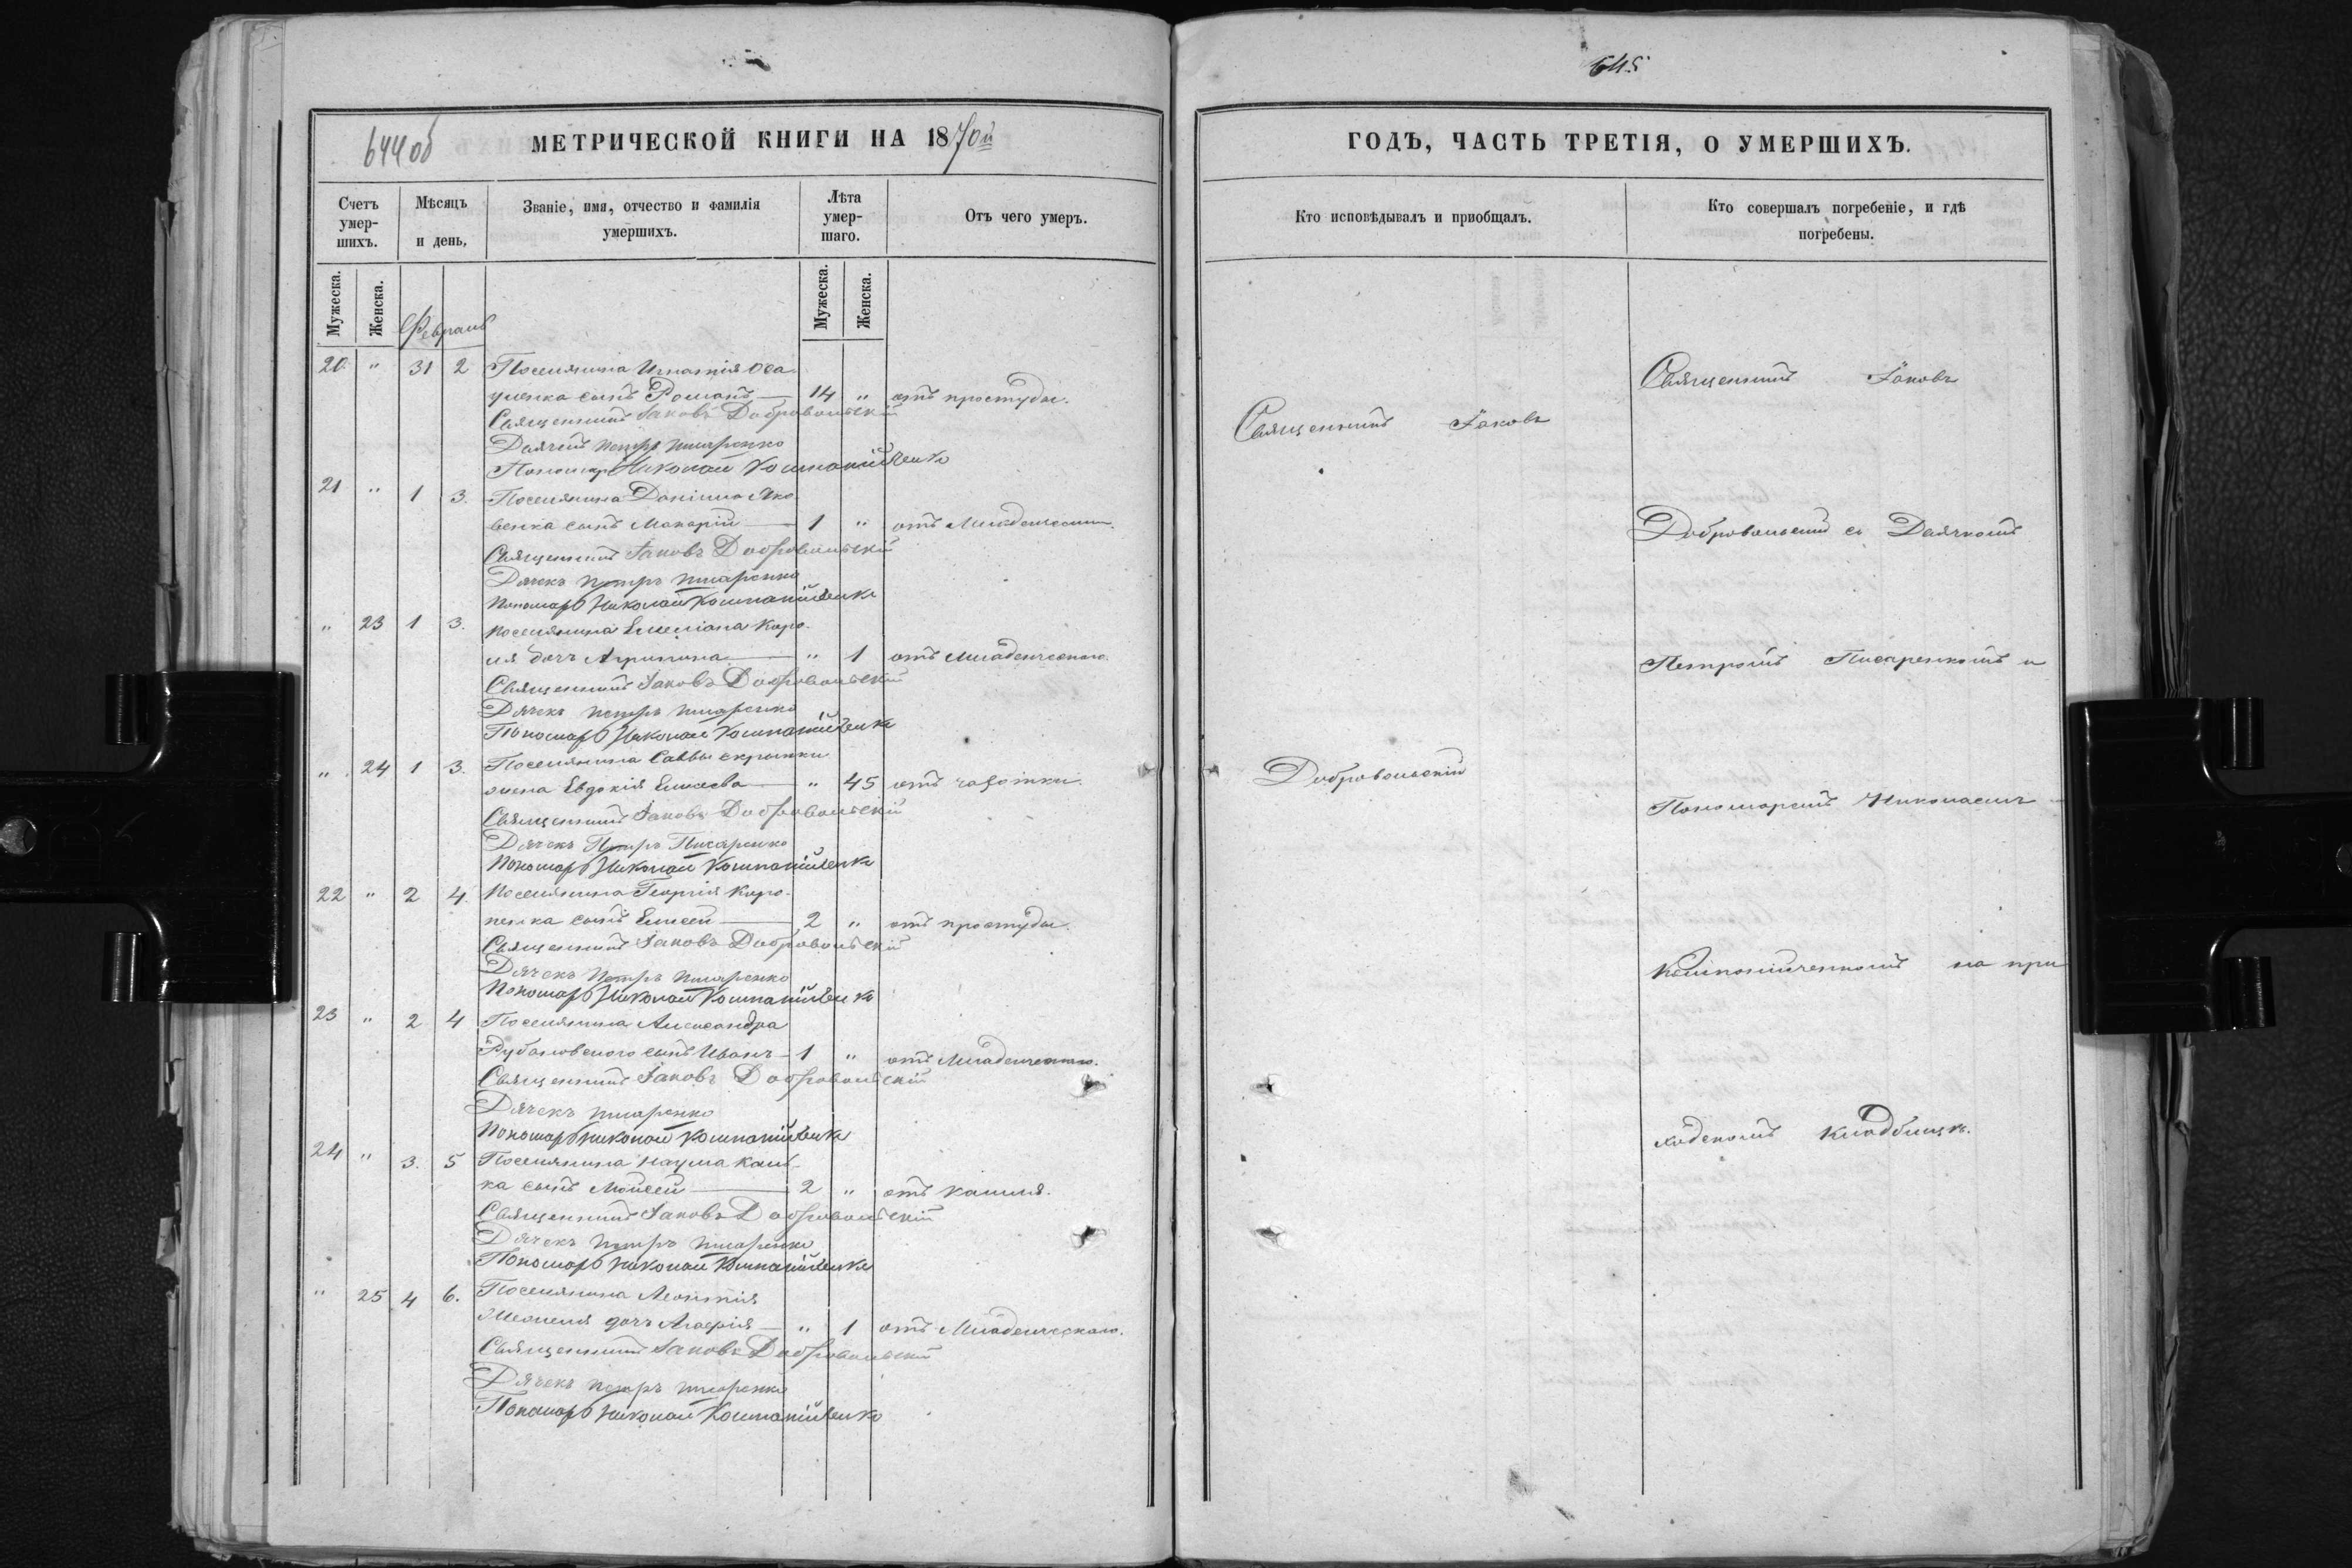 644об
МЕТРИЧЕСКОЙ КНИГИ НА 1870й
Счетъ умер-шихъ.
Мѣсяцъ и день,
Званіе, имя, отчество и фамилія умершихъ.
Лѣта умер-шаго.
Отъ чего умеръ.
Мужеска. Женска. Февраль Мужеска. Женска.
20 " 31 2 Поселянина Игнатія Оса-
уленка сынъ Романъ — 14 " отъ простуды.
Священникъ Іаковъ Добровольскій
Дьячекъ Петръ Писаренко
Пономарь Николай Компанійченко
21 " 1 3. Поселянина Даніила Яко-
венка сынъ Макарій — 1 " отъ Младенческаго.
Священникъ Іаковъ Добровольскій
Дячекъ Петръ Писаренко
Пономарь Николай Компанійченко
" 23 1 3. Поселянина Емеліана Коро-
ля дочь Агрипина — " 1 отъ Младенческаго.
Священникъ Іаковъ Добровольскій
Дячекъ Петръ Писаренко
Пономарь Николай Компанійченко
" 24 1 3. Поселянина Саввы Скрыпки
жена Евдокія Елисеева — " 45 отъ чахотки.
Священникъ Іаковъ Добровольскій
Дячекъ Петръ Писаренко
Пономарь Николай Компанійченко
22 " 2 4. Поселянина Георгія Коро-
пенка сынъ Елисей — 2 " отъ простуды.
Священникъ Іаковъ Добровольскій
Дячекъ Петръ Писаренко
Пономарь Николай Компанійченко
23 " 2 4 Поселянина Александра
Рубановского сынъ Иванъ — 1 " отъ Младенческаго.
Священникъ Іаковъ Добровольскій
Дячекъ Писаренко
Пономарь Николай Компанійченко
24 " 3. 5 Поселянина Наума Каль-
ка сынъ Моисей — 2 " отъ кашля.
Священникъ Іаковъ Добровольскій
Дячекъ Петръ Писаренко
Пономарь Николай Компанійченко
" 25 4 6. Поселянина Леонтія
дочь — " 1 отъ Младенческаго.
Священникъ Іаковъ Добровольскій
Дячекъ Петръ Писаренко
Пономарь Николай Компанійченко
645
ГОДЪ, ЧАСТЬ ТРЕТІЯ, О УМЕРШИХЪ.
Кто исповѣдывалъ и приобщалъ.
Кто совершалъ погребеніе, и гдѣ погребены.
Священникъ Іаковъ
Добровольскій
Священникъ Іаковъ
Добровольскій съ Дьячкомъ
Петромъ Писаренкомъ и
Пономаремъ Николаемъ
Компанійченкомъ на при
ходскомъ кладбищѣ.